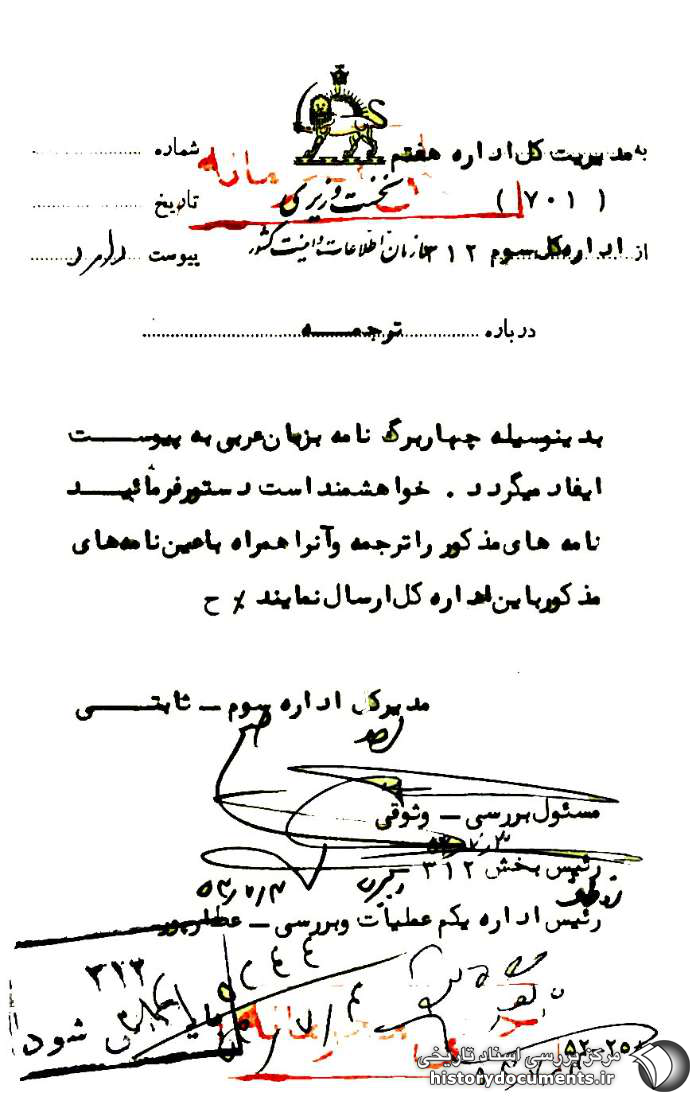 به مدیریت کل اداره هفتم
شماره
( ۷۰۱ )
نخست وزیری
تاریخ
از اداره کل سوم ۳۱۲
سازمان اطلاعات و امنیت کشور
پیوست دارد
درباره ترجمه
بدینوسیله چهار برگ نامه بزبان عربی به پیوست
ایفاد میگردد . خواهشمند است دستور فرمائید
نامه های مذکور را ترجمه و آنرا همراه با عین نامه های
مذکور باین اداره کل ارسال نمایند ٪ ح
مدیر کل اداره سوم ــ ثابتی
مسئول بررسی ــ وثوقی
رئیس بخش ۳۱۲ ــ
رئیس اداره یکم عملیات و بررسی ــ عطارپور
۳۱۲
شود
مرکز بررسی اسناد تاریخی
historydocuments.ir